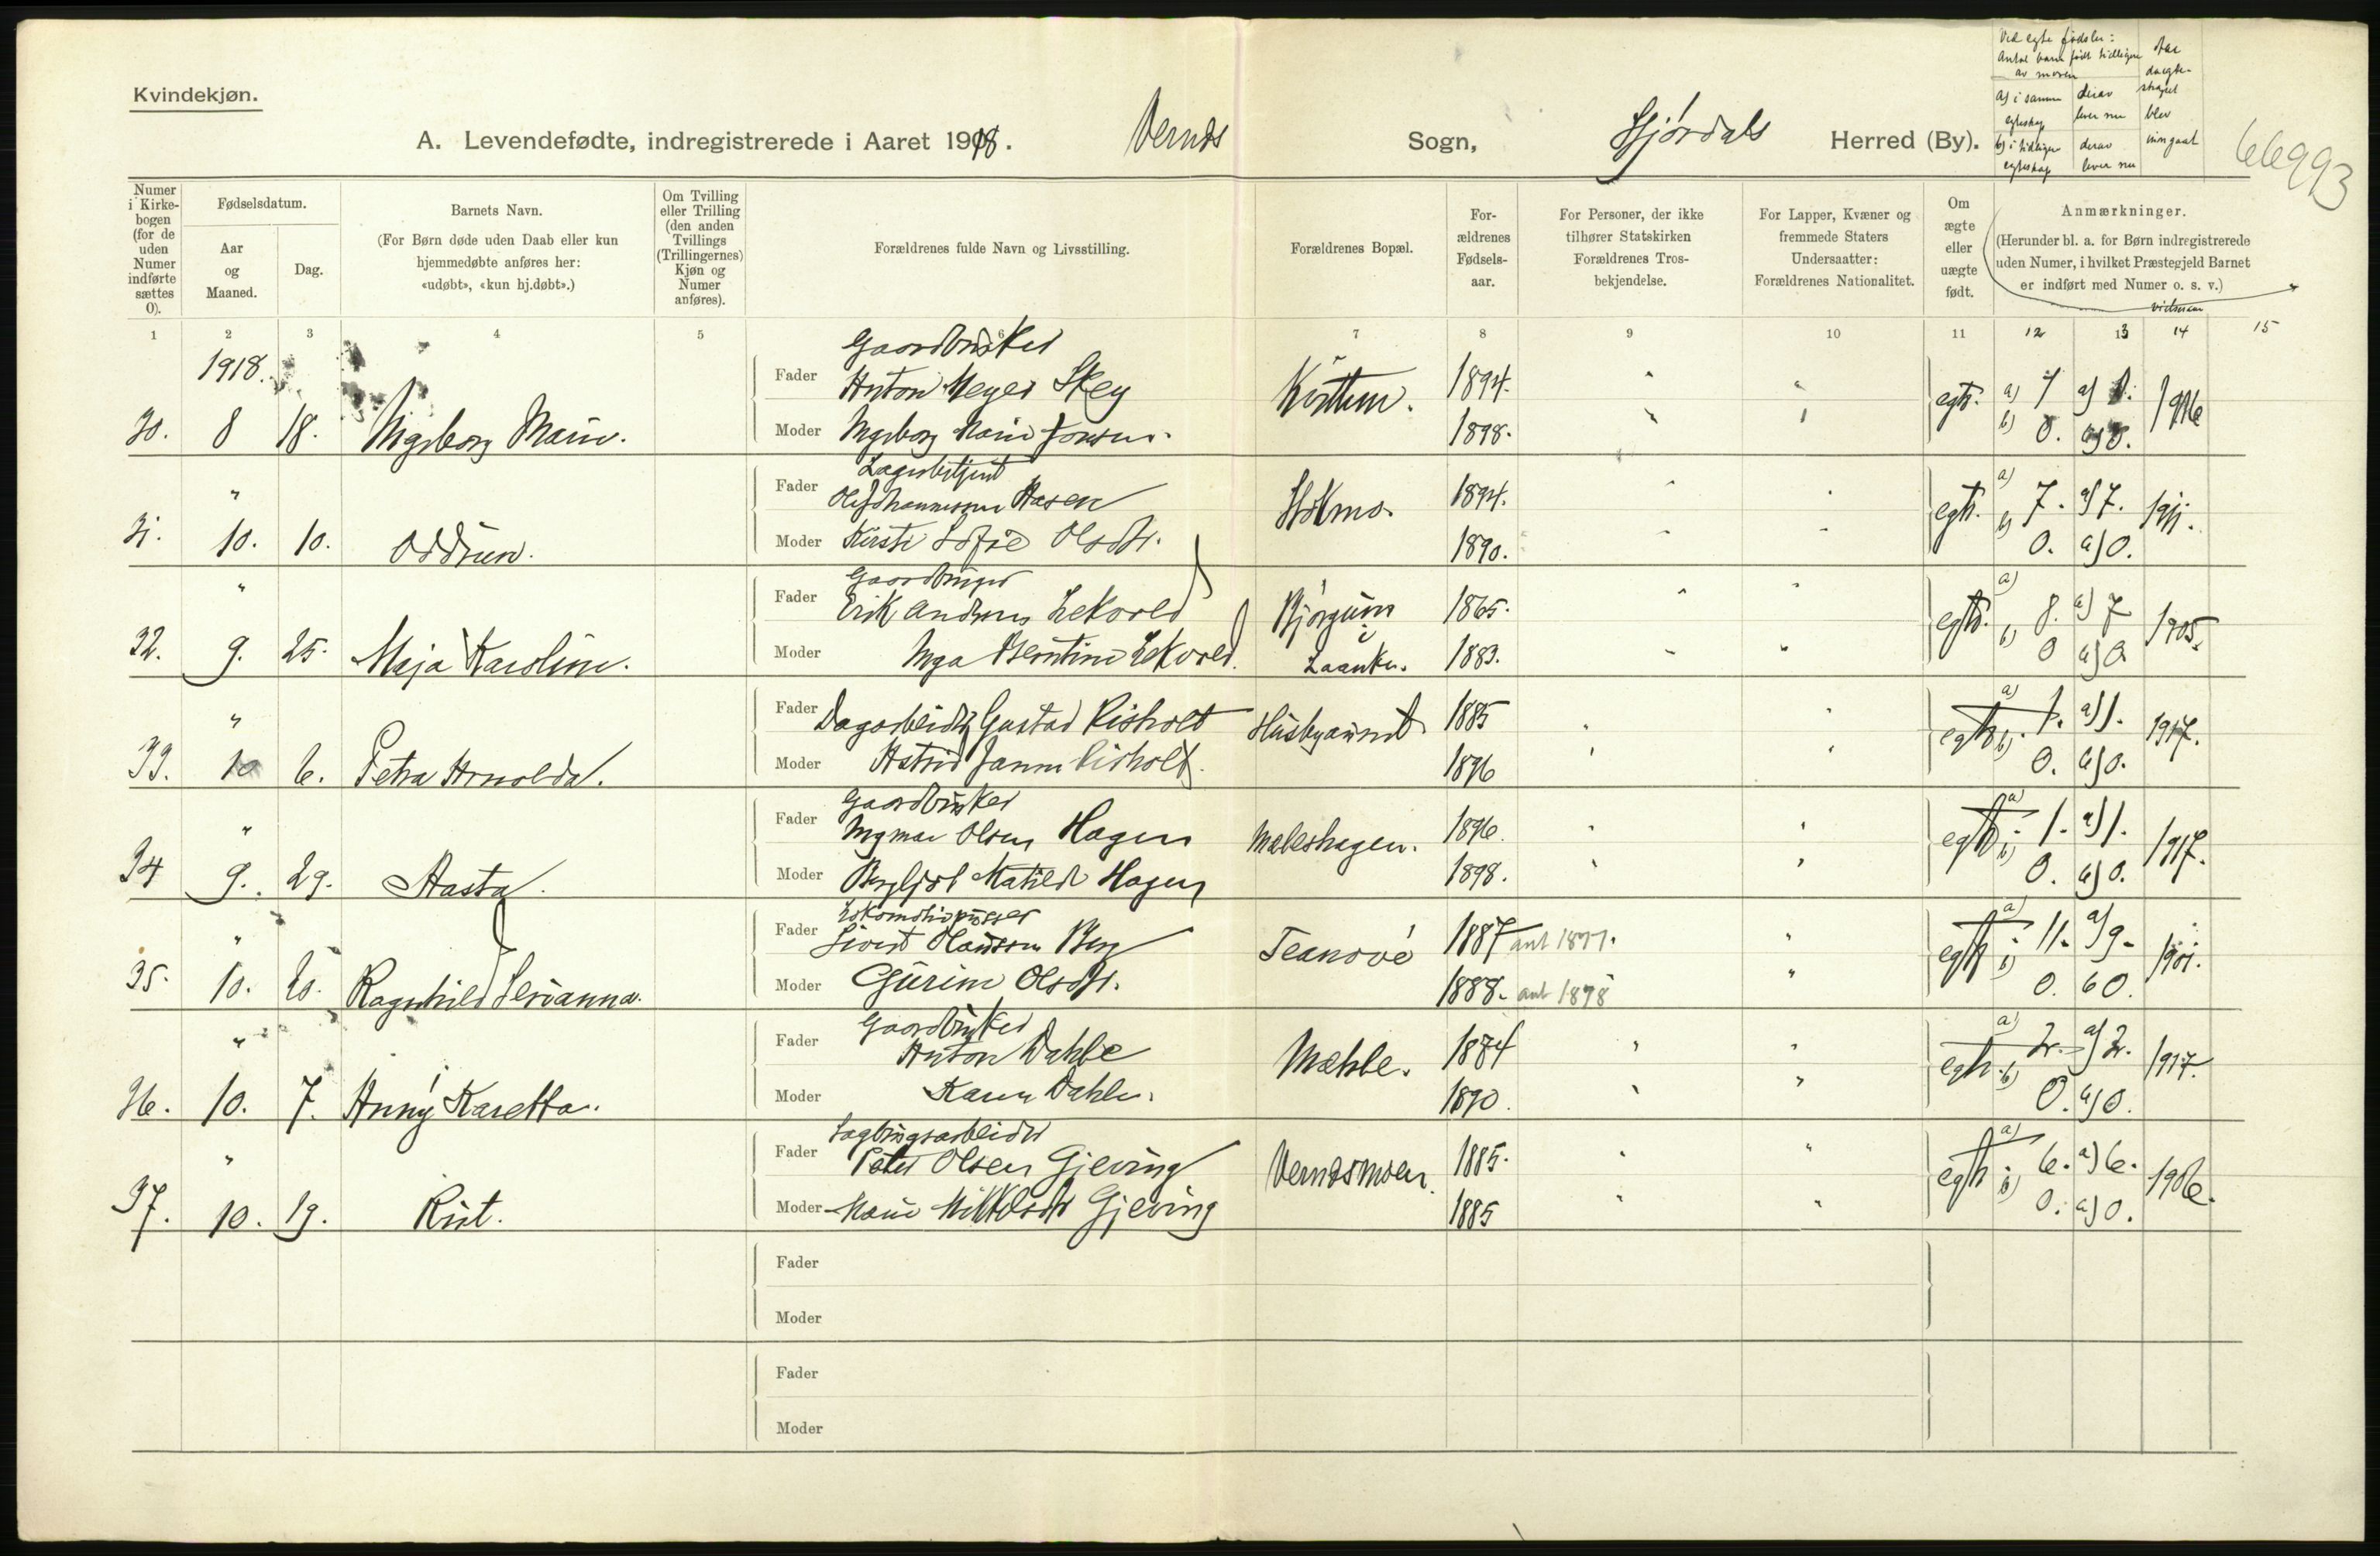 Kvindekjøn.
A. Levendefødte, indregistrerede i Aaret 1918. Vernes Sogn, Stjørdals Herred (By).
Ved egte fødsler:
Antal barn født tidligere
av moren
a) i samme egteskap
derav lever nu
b) i tidligere egteskap
derav lever nu
blev inngaat
66993
Numer i Kirkebogen (for de uden Numer indførte sættes 0).
Fødselsdatum.
Aar og Maaned.
Dag.
Barnets Navn.
(For Børn døde uden Daab eller kun hjemmedøbte anføres her: «udøbt», «kun hj.døbt».)
Om Tvilling eller Trilling (den anden Tvillings (Trillingernes) Kjøn og Numer anføres).
Forældrenes fulde Navn og Livsstilling.
Forældrenes Bopæl.
Forældrenes Fødselsaar.
For Personer, der ikke tilhører Statskirken Forældrenes Trosbekjendelse.
For Lapper, Kvæner og fremmede Staters Undersaatter: Forældrenes Nationalitet.
Om ægte eller uægte født.
Anmærkninger.
(Herunder bl. a. for Børn indregistrerede uden Numer, i hvilket Præstegjeld Barnet er indført med Numer o. s. v.)
1 2 3 4 5 6 7 8 9 10 11 12 13 14 15
1918.
Gaardbruker
Fader Anton Meyer Skey 1894. egte. a) 1 a) 1. 1916
30. 8 18. Ingeborg Marie. Moder Ingeborg Marie Jonsen. 1898. b) 0. b) 0.
Lagerbetjent
" Fader Ole Johannessen Aasen Stokmo. 1894. egte. a) 7. a) 7. 1911.
31. 10. 10. Oddrun. Moder Kirsti Sofie Olsdtr. 1890. b) 0. b) 0.
Gaardbruger
" Fader Erik Andreas Lekvold Bjørgum i 1865. egte. a) 8. a) 7 1905.
32. 9. 25. Maja Karoline. Moder Inga Berntine Lekvold. Laanke. 1883. b) 0 b) 0
" Fader Dagarbeider Gustad Risholt Husbyaunet 1885 egte a) 1. a) 1. 1917.
33. 10 6. Petra Arnolda. Moder Astrid Janna Risholt. 1896 b) 0. b) 0.
Gaardbruker
" Fader Ingmar Olsen Hagen Mæleshagen. 1896. egte a) 1. a) 1. 1917.
34 9. 29. Aasta. Moder Bergljot Matilde Hagen 1898. b) 0. b) 0.
Lokomotivpusser
" Fader Sivert Olaussen Berg 1887 ant 1877. egte a) 11. a) 9. 1901.
35. 10. 20. Ragnhild Moder Gurine Olsdtr. 1888. ant 1878 b) 0. b 0.
Gaardbruker
" Fader Anton Dahle Mæhle. 1884 egte. a) 2. a) 2. 1917.
36. 10. 7. Anny Karetta. Moder Karen Dahle. 1890. b) 0. b) 0.
Sagbrugsarbeider
" Fader Peter Olsen Gjeving Vernesmoen. 1885. egte a) 6. a) 6. 1906.
37. 10. 19. Rut. Moder Marie Mikkelsdtr Gjeving 1885 b) 0. b) 0.
Fader
Moder
Fader
Moder